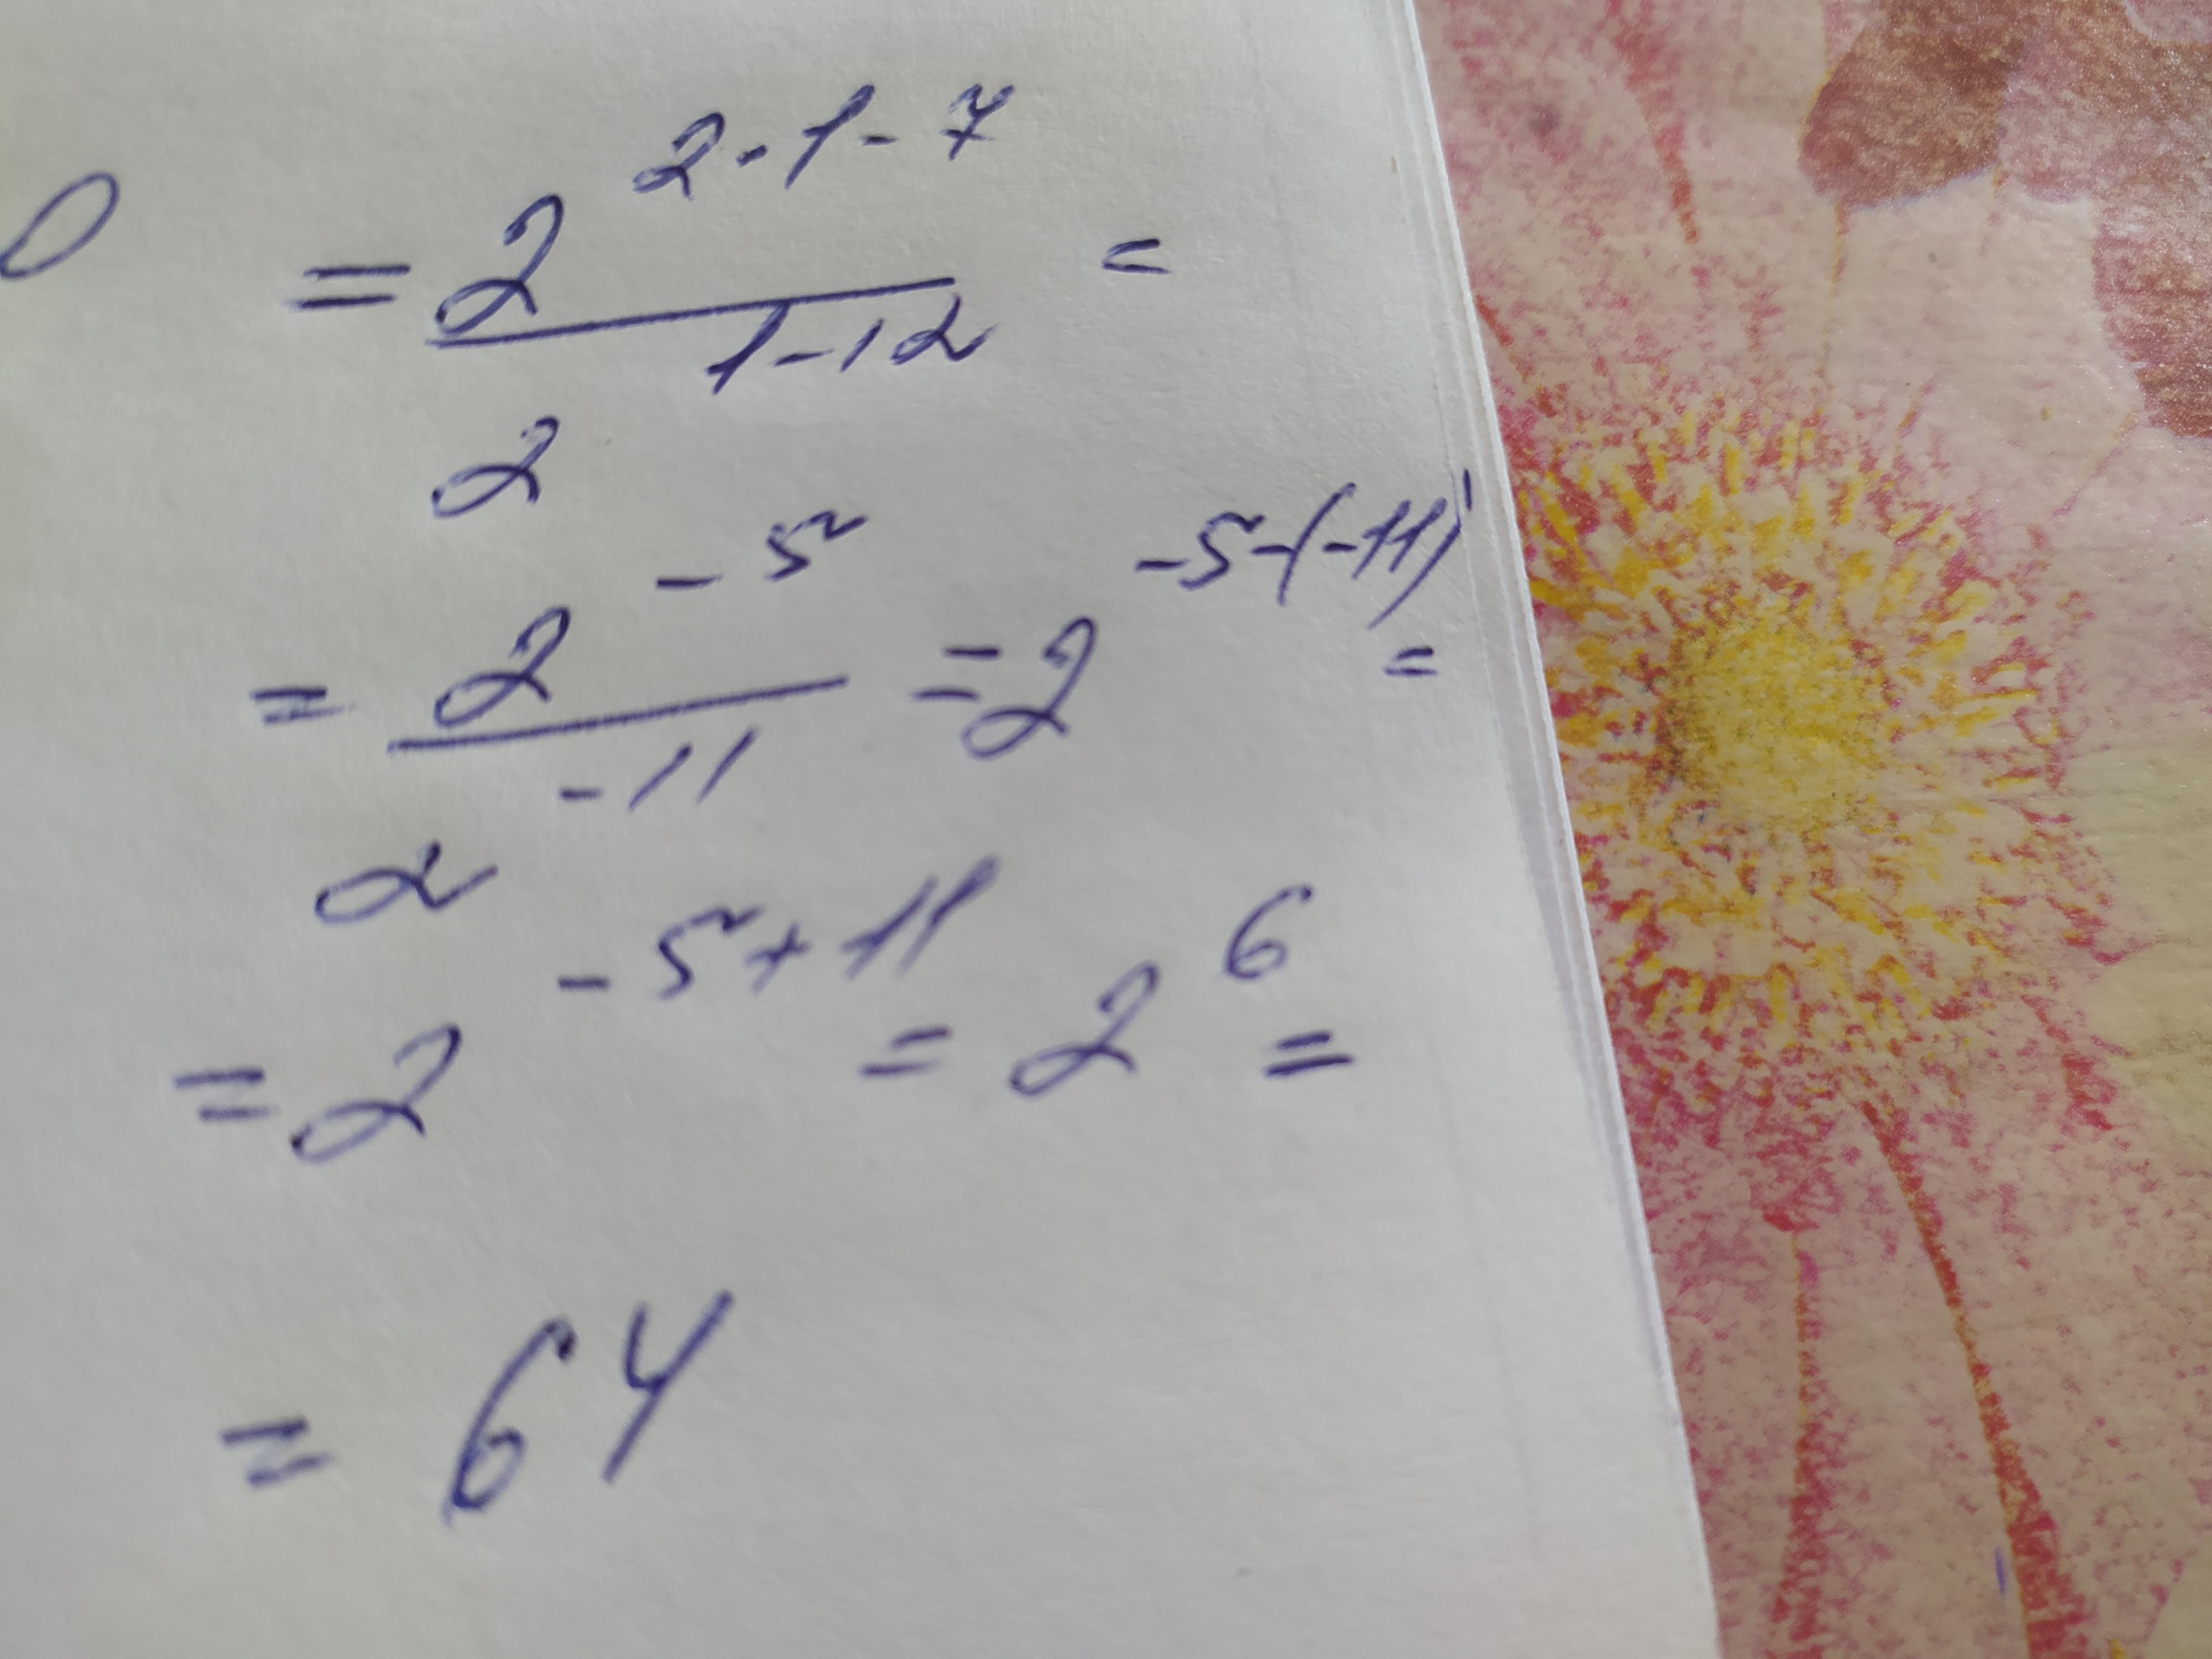 0 = 2^{2·1-7} / 2^{1-12} =
= 2^{-5} / 2^{-11} = 2^{-5-(-11)} =
= 2^{-5+11} = 2^{6} =
= 64